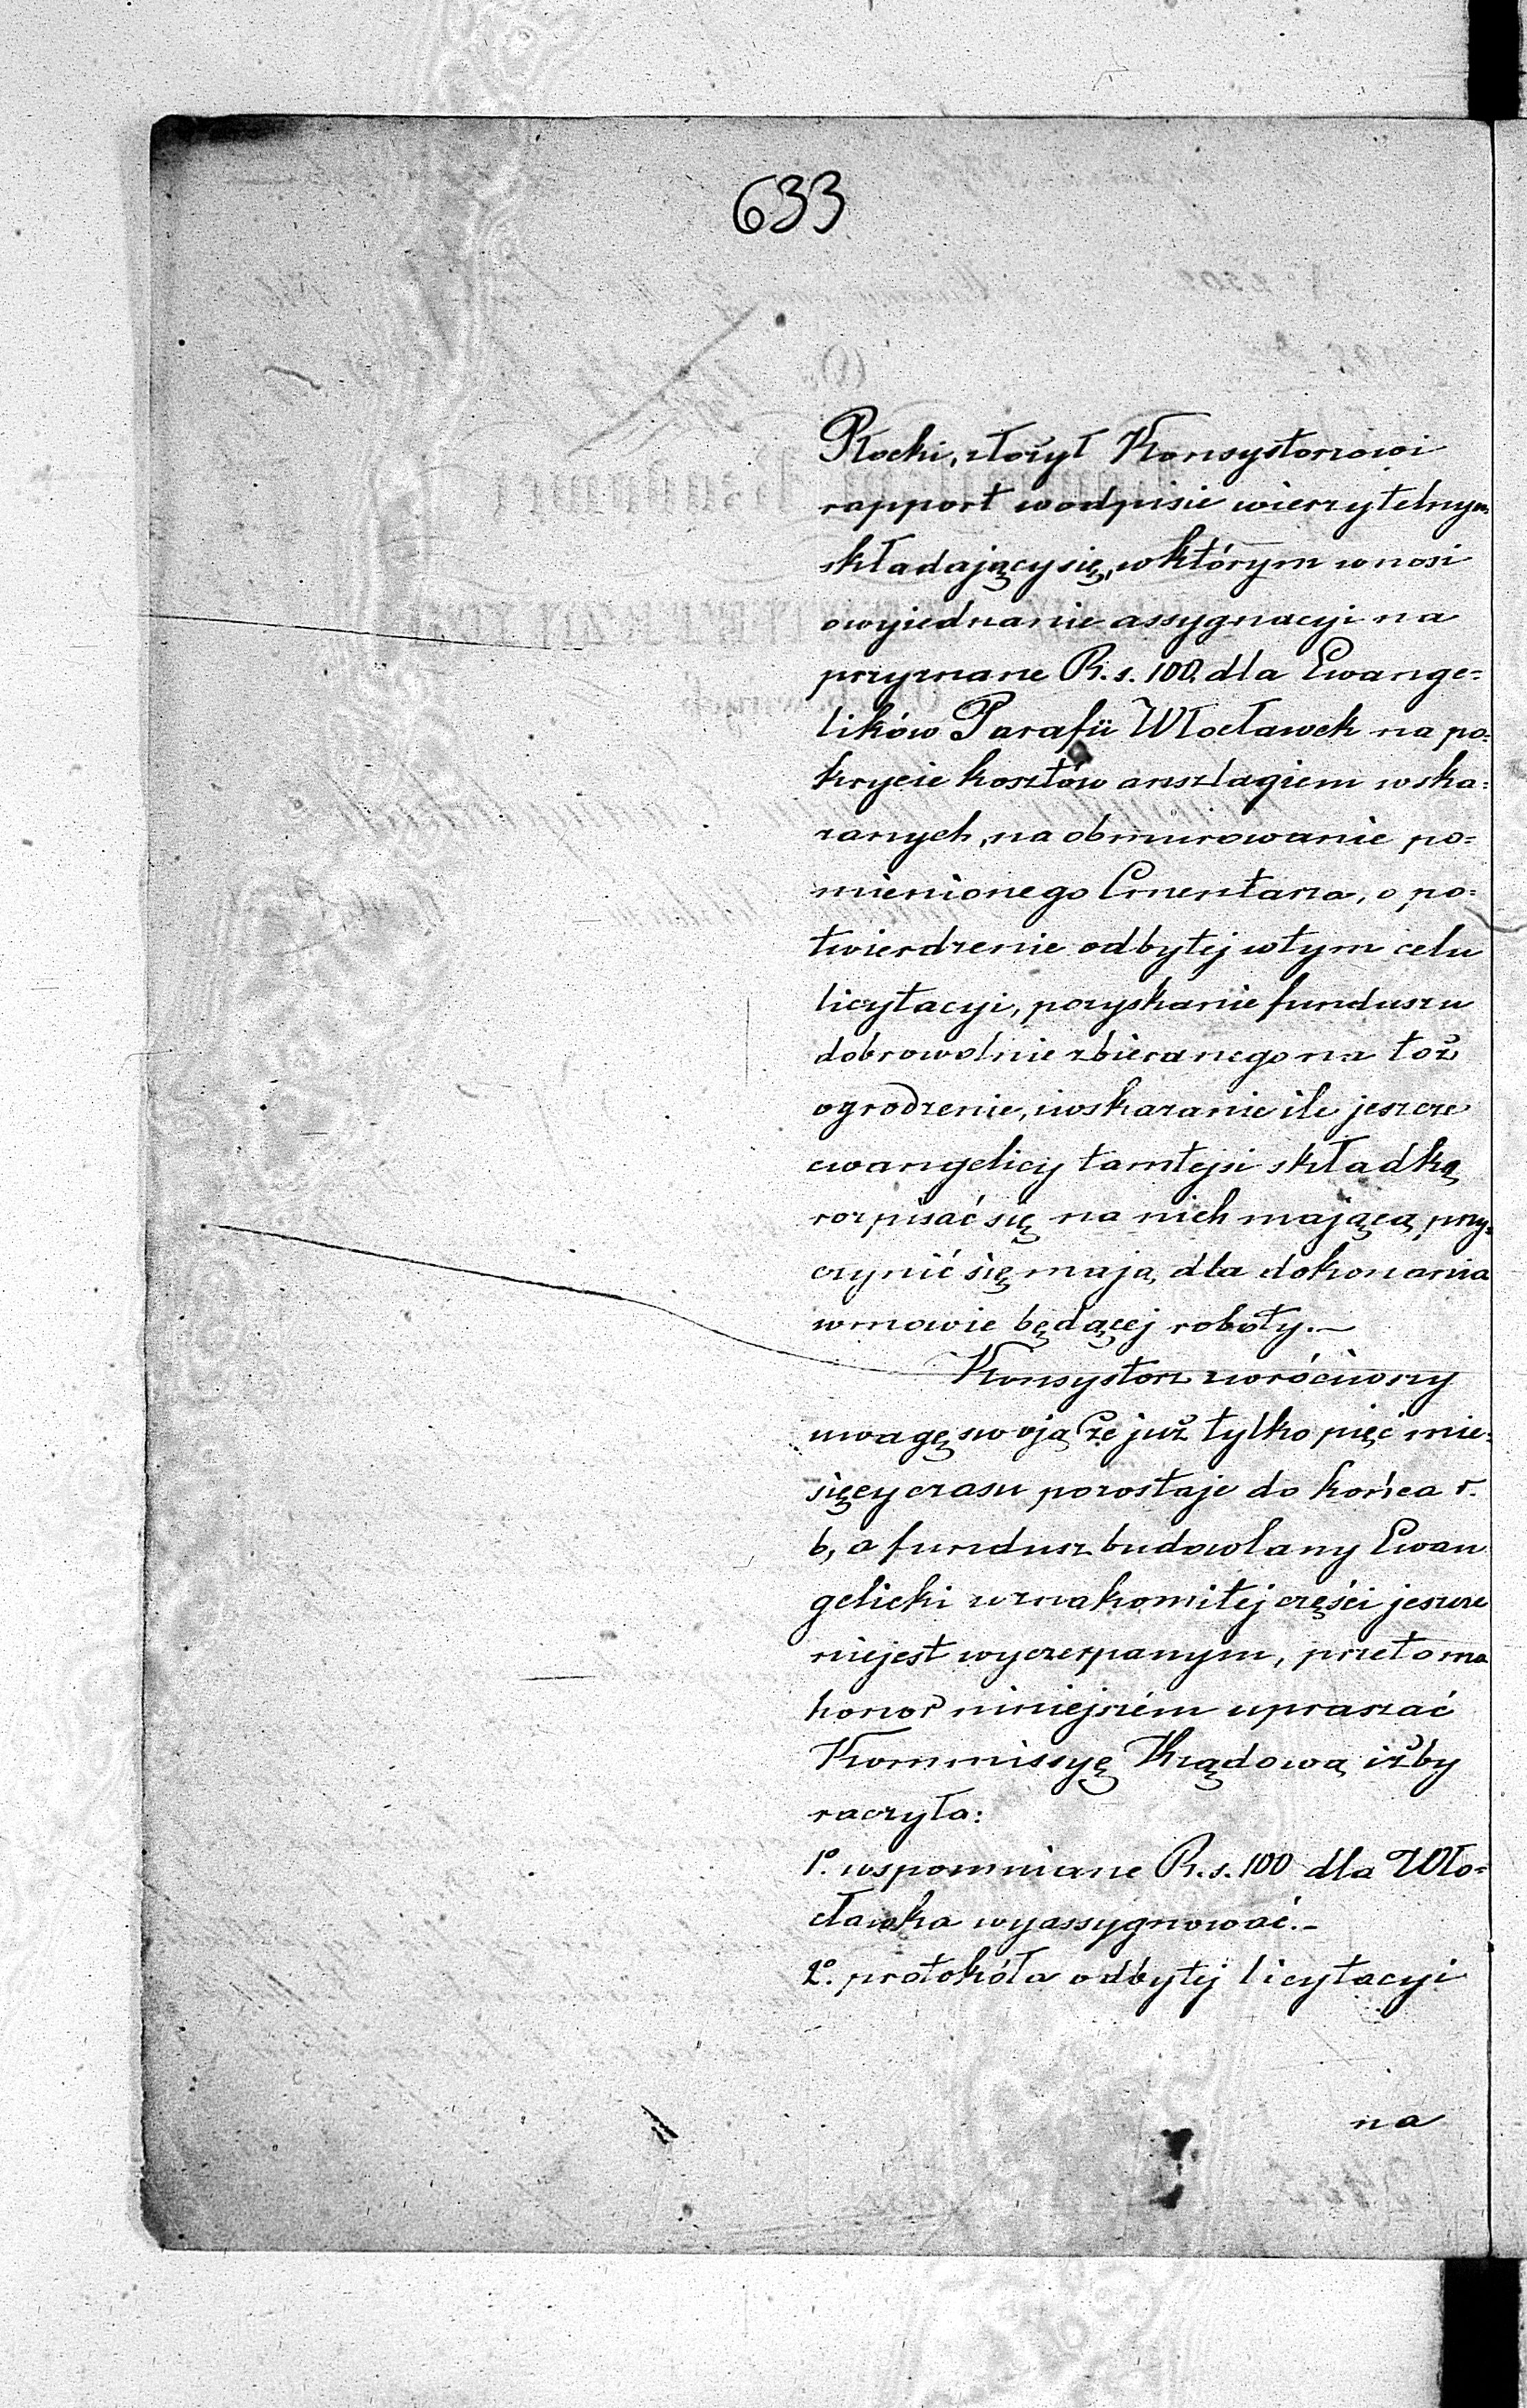 633
Płocki, złożył Konsystorzowi
rapport w odpisie wierzytelnym
składający się, w którym wnosi
o wyjednanie assygnacyi na
przyznane R. s. 100 dla Ewange=
lików Parafii Włocławek na po=
krycie kosztów anszlagiem wska=
zanych, na obmurowanie po=
mienionego Cmentarza, o po=
twierdzenie odbytej w tym celu
licytacyi, pozyskanie funduszu
dobrowolnie zbieranego na toż
ogrodzenie, i wskazanie ile jeszcze
ewangelicy tamtejsi składką
rozpisać się na nich mającą, przy=
czynić się mają, dla dokonania
w mowie będącej roboty.—
Konsystorz zwróciwszy
uwagę swoją że już tylko pięć mie=
sięcy czasu pozostaje do końca r.
b, a fundusz budowlany Ewan
gelicki w znakomitej części jeszcze
niejest wyczerpanym, przeto ma
honor niniejszém upraszać
Kommissyę Rządową iżby
raczyła:
1º. wspomniane R. s. 100 dla Wło=
cławka wyassygnować.–
2º. protokóła odbytej licytacyi
na